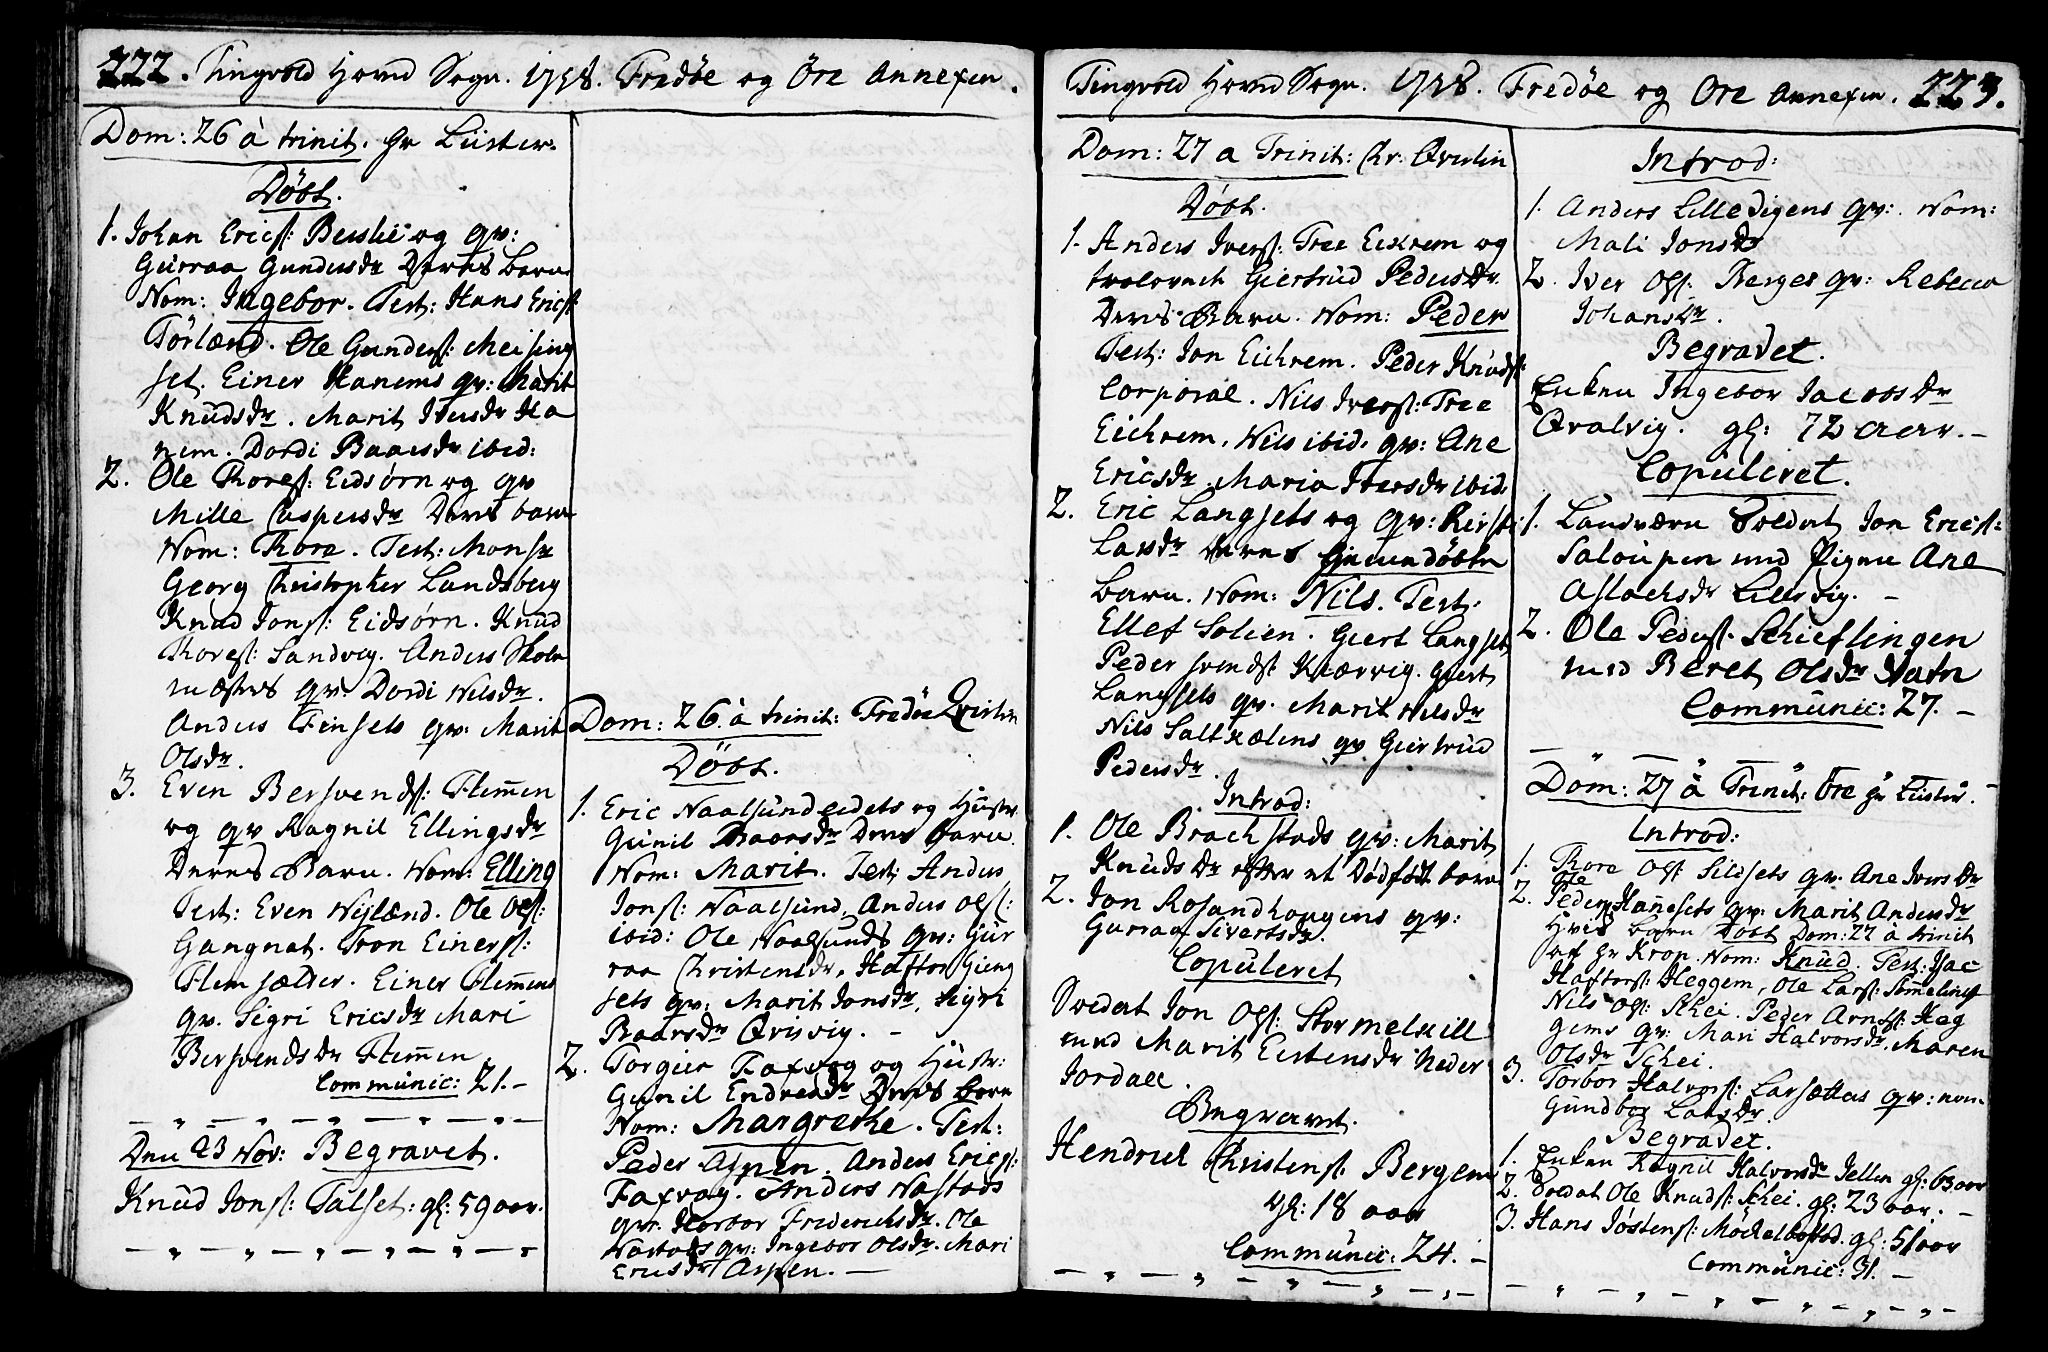 222. Tingvold Hoved Sogn. 1758. Fredöe og Öre Annexer.
Dom: 26 à trinit. Hr Lüster.
Döbt.
1. Johan Erics: Beslie og qv:
Gurraa Gundersdr Deres barn
Nom: Ingebor. Test: Hans Erics:
Törlænd. Ole Gunders: Meising
set. Einer Hanems qv: Marit
Knudsdr. Marit Iversdr Ha
nem. Dordi Baarsdr ibid:
2. Ole Thores: Eidsörn og qv
Mille Caspersdr Deres barn
Nom: Thore. Test: Monsr
Georg Christopher Landsberg
Knud Jons: Eidsörn. Knud
Thores: Sandvig. Anders Skole
mesters qv. Dordi Nilsdr.
Anders Finsets qv: Marit
Olsdr.
3. Even Bersvends: Flemen
og qv Ragnil Ellingsdr
Deres Barn. Nom: Elling
Test: Even Nylænd. Ole Ols:
Gangnat. Tron Einers:
Flemsælder. Einer Flemens
qv. Sigri Ericsdr Mari
Bersvendsdr Flemen.
Communic: 21.
Den 23 Nov: Begravet.
Knud Jons: Talset: gl: 59 aar.
Dom: 26 à trinit: Fredöe Qvistin
Döbt.
1. Eric Naalsundeidets og Hustr
Gunil Baarsdr Deres barn
Nom: Marit. Test: Anders
Jons: Naalsund. Anders Ols:
ibid: Ole Naalsunds qv: Gur
raa Christensdr. Haftor Gieng
sets qv: Marit Jonsdr. Sigri
Baarsdr Qvisvig.
2. Torgier Faxvog og Hustr:
Gunil Endresdr Deres barn
Nom: Margrethe. Test:
Peder Aspen. Anders Erics:
Faxvag. Anders Nastads
qv. Horbor Friderichsdr. Ole
Nastads qv: Ingebor Olsdr. Mari
Ericsdr Aspen.
Tingvold Hoved Sogn. 1758. Fredöe og Ore Annexer. 223.
Dom: 27 a Trinit: Hr: Qvislin
Döbt.
1. Anders Ivers: Tree Eikrem og
trolovede Giertrud Pedersdr
Deres Barn. Nom: Peder
Test: Jon Eichrem. Peder Knuds:
Corporal. Nils Ivers: Tree
Eichrem. Nils ibid. qv: Ane
Ericsdr. Maria Iversdr ibid.
2. Eric Langsets og qv: Kirsti
Larsdr Deres
barn. Nom: Nils. Test:
Ellef Solien. Giert Langset
Peder Svends: Kiærvig. Giert
Langsets qv. Marit Nilsdr
Nils Saltkælens qv Giertrud
Pedersdr.
Introd:
1. Ole Brachstads qv: Marit
Knudsdr efter et Dödföt barn
2. Jon Rosandhaugens qv:
Guraa Sivertsdr.
Copuleret
Soldat Jon Ols: Stormelhill
med Marit Eistensdr Neder
Jordall.
Begravet.
Hendrick Christens: Bergem
gl: 18 aar
Communic: 24.
Introd:
1. Anders Lilledigens qv: Nom:
Mali Jonsdr
2. Iver Ols: Berges qv: Rebecca
Johansdr.
Begravet.
Enken Ingebor Jacobsdr
Qvalvig. gl: 72 aar.
Copuleret.
1. Landværn Soldat Jon Erics:
Saloupen med Pigen Ane
Aslachsdr Lillevig.
2. Ole Peders: Schieflingen
med Beret Olsdr Vatn
Communic: 27.
Dom: 27 à Trinit: Öre Hr Lüster.
Introd:
1. Thore Ols: Sildsets qv. Ane Iversdr
2. Ole Peders: Hanesets qv: Marit Andersdr
Hvis barn Döbt Dom: 22 à trinit
af Hr Krop. Nom: Knud. Test: Isac
Haftors: Heggem, Ole Lars: Semelinst
Nils Ols: Schei. Peder Arnes: Heg
gems qv: Mari Halvorsdr. Maren
Olsdr Schei.
3. Torbor Halvors: Larsættes qv: nom
Gundbor Larsdr.
Begravet.
1. Enken Ragnil Halvorsdr Jellen gl: 63 aar
2. Soldat Ole Knuds: Schei. gl: 23 aar.
3. Hans Jöstens: Möckelbostad. gl: 51 aar
Communic: 31.